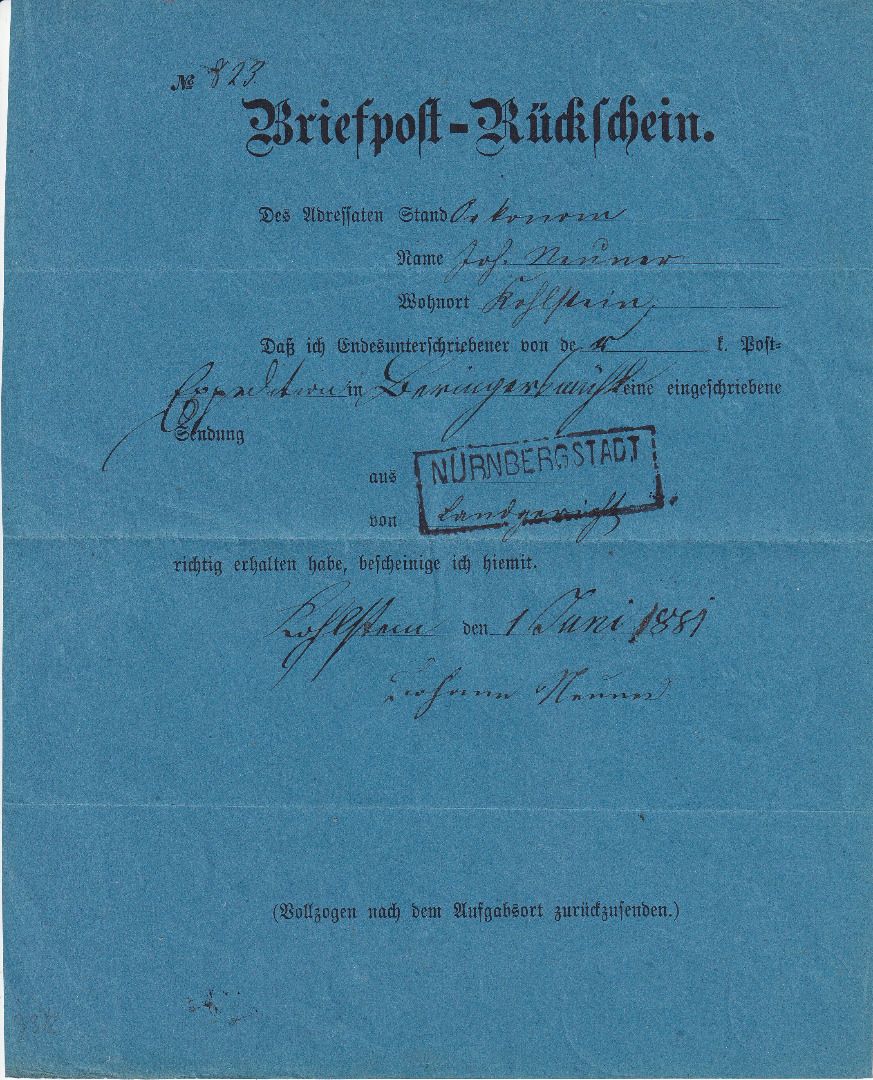 № 823
Briefpost-Rückschein.
Des Adressaten Stand Oekonom
Name Joh. Neuner
Wohnort Kohlstein.
Daß ich Endesunterschriebener von de r k. Post-
Expedition in Beringersmühl eine eingeschriebene
Sendung
aus NÜRNBERG STADT
von Landgericht
richtig erhalten habe, bescheinige ich hiemit.
Kohlstein den 1 Juni 1881
Johann Neuner
(Vollzogen nach dem Aufgabsort zurückzusenden.)